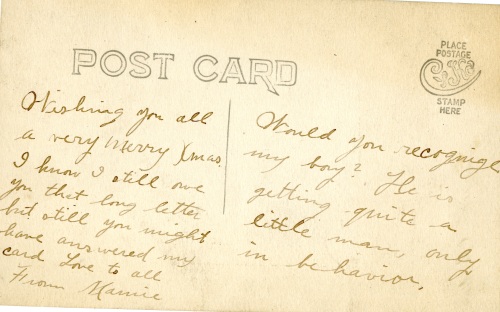 POST CARD
PLACE
POSTAGE
STAMP
HERE
Wishing you all
a very Merry Xmas.
I know I still owe
you that long letter
but still you might
have answered my
card Love to all
From Mamie
Would you recognize
my boy? He is
getting quite a
little man, only
in behavior.